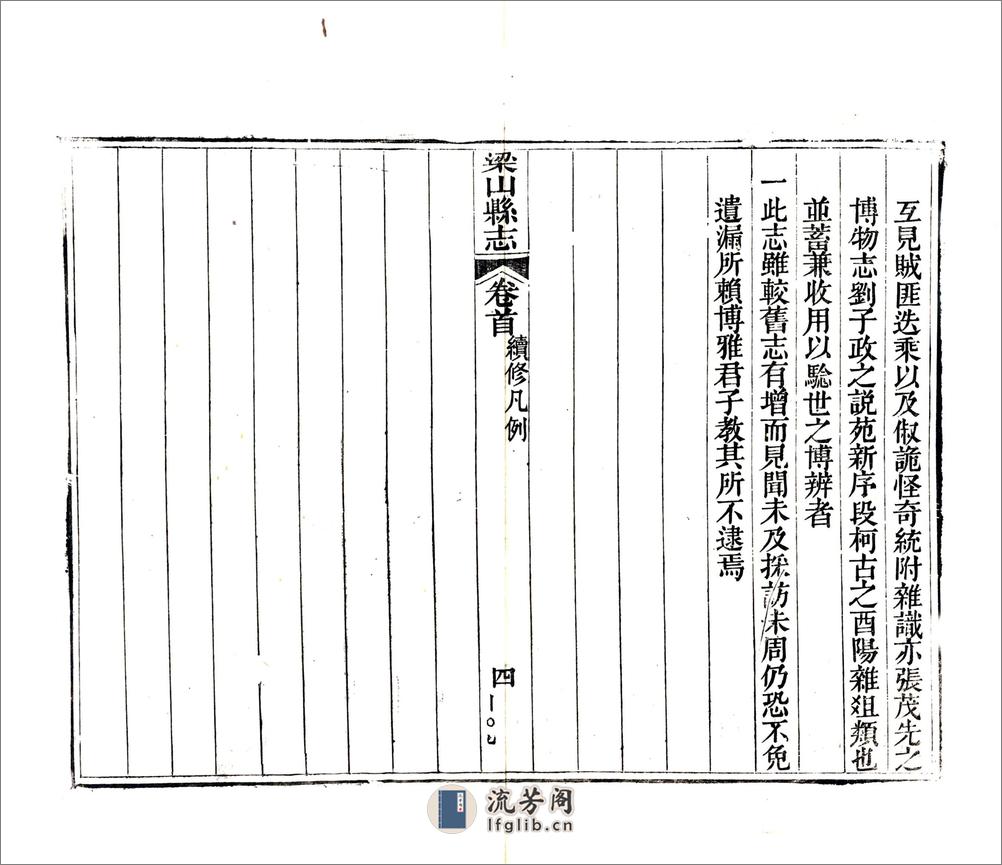 互見賊匪迭乘以及俶詭怪奇統附雜識亦張茂先之
博物志劉子政之説苑新序段柯古之酉陽雜俎類也
並蓄兼收用以騐世之博辨者
一此志雖較舊志有增而見聞未及採訪未周仍恐不免
遺漏所賴博雅君子教其所不逮焉
梁山縣志
卷首
續修凡例
四
流芳阁
lfglib.cn